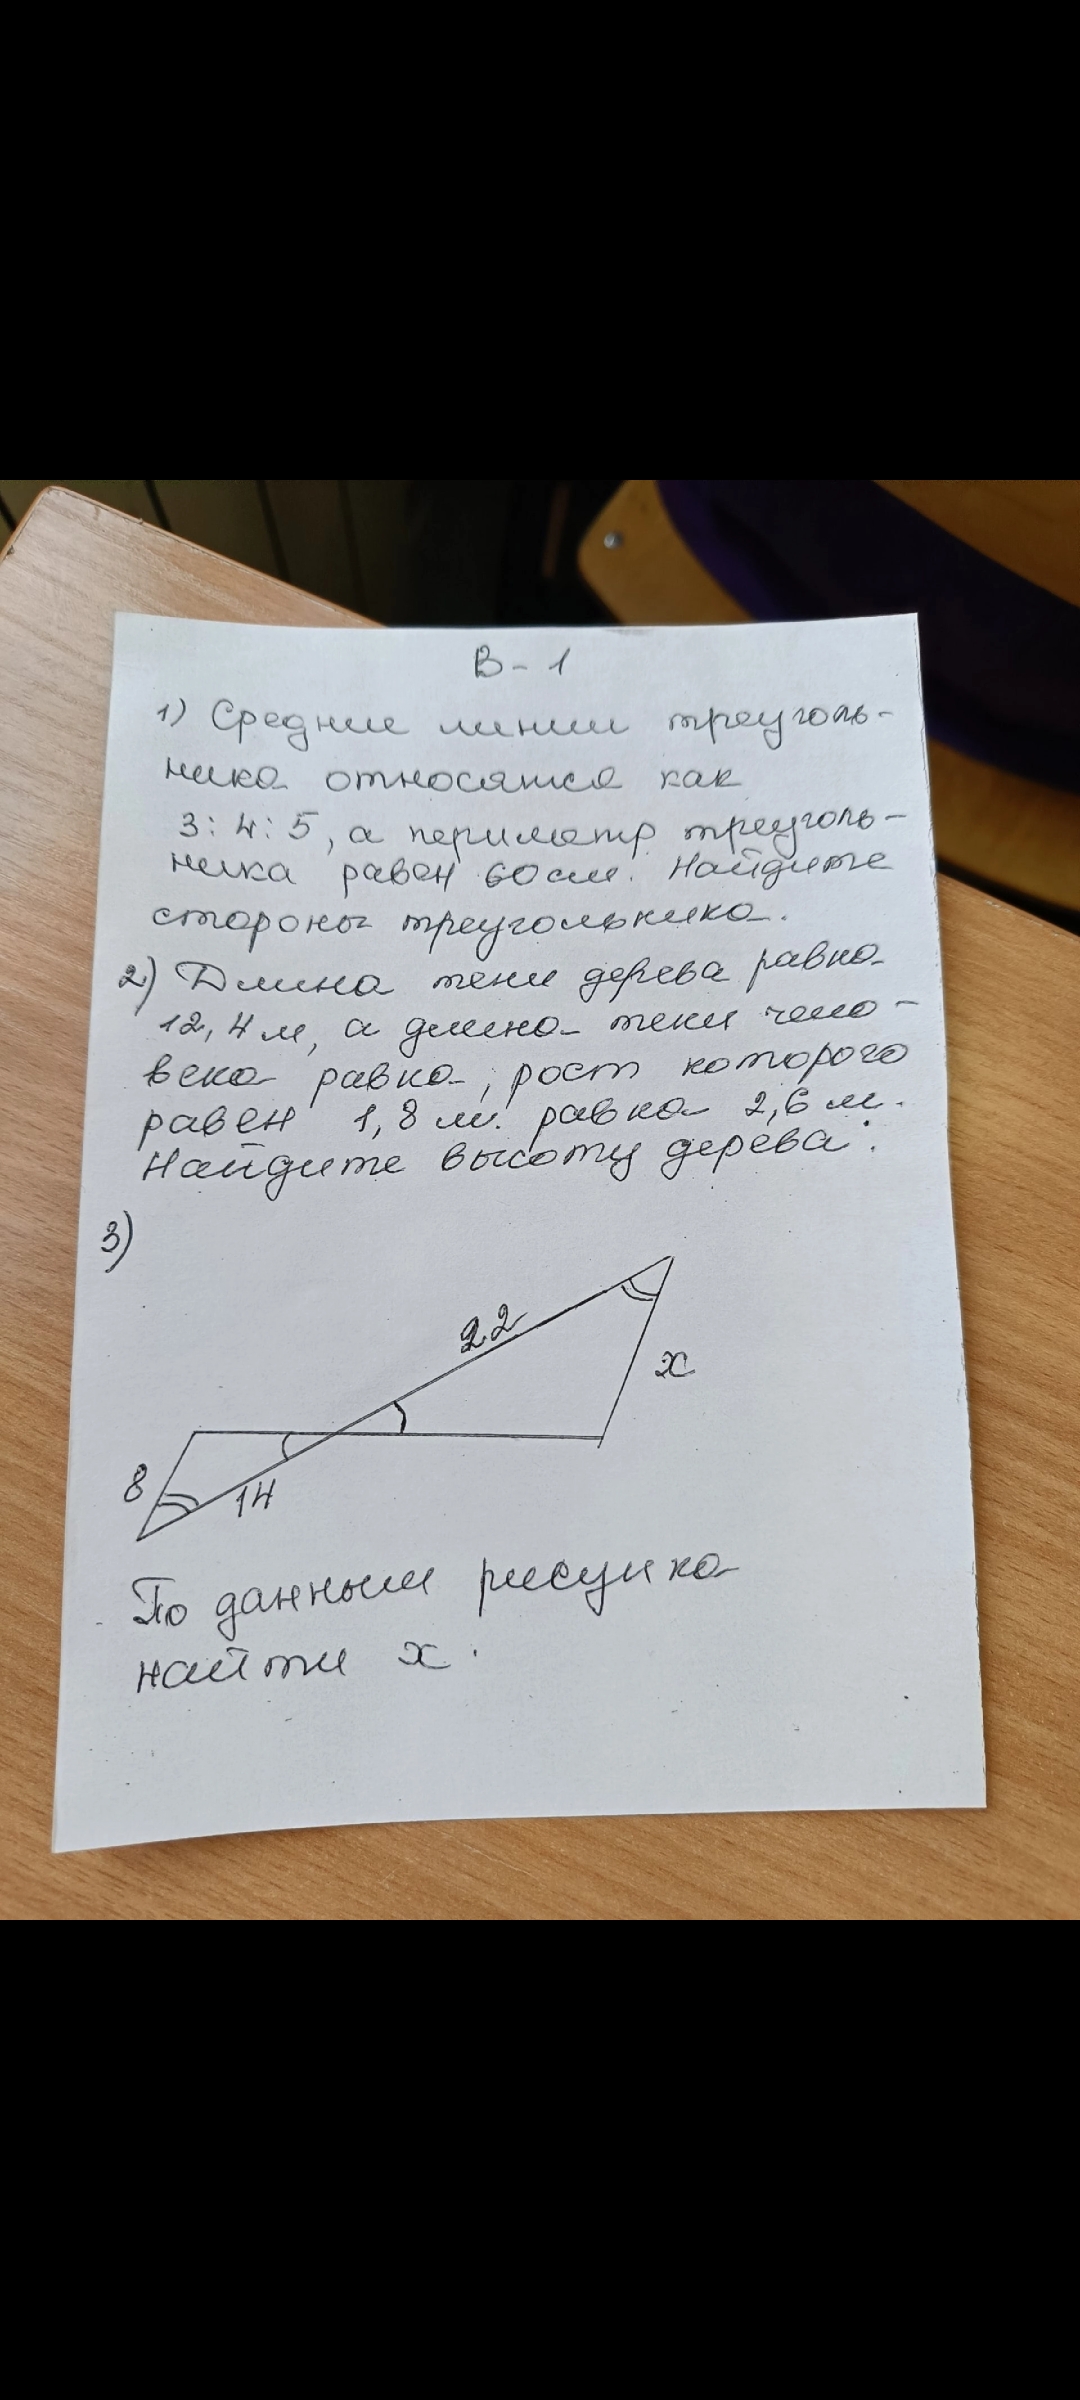 В - 1
1) Средние линии треуголь-
ника относятся как
3 : 4 : 5, а периметр треуголь-
ника равен 60 см. Найдите
стороны треугольника.
2) Длина тени дерева равна
12,4 м, а длина тени чело-
века равна, рост которого
равен 1,8 м. равна 2,6 м.
Найдите высоту дерева.
3)
22
x
8
14
По данным рисунка
найти x.